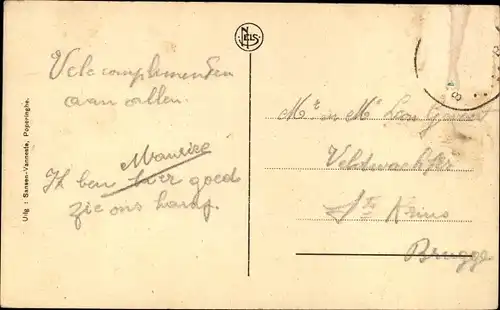 Vele complimenten
aan allen.
Maurice
Ik ben hier goed
zie ons
Uitg : Sansen-Vanneste, Poperinghe.
NELS
Mr en Me Leon
Veldwachter
St Kruis
Brugge